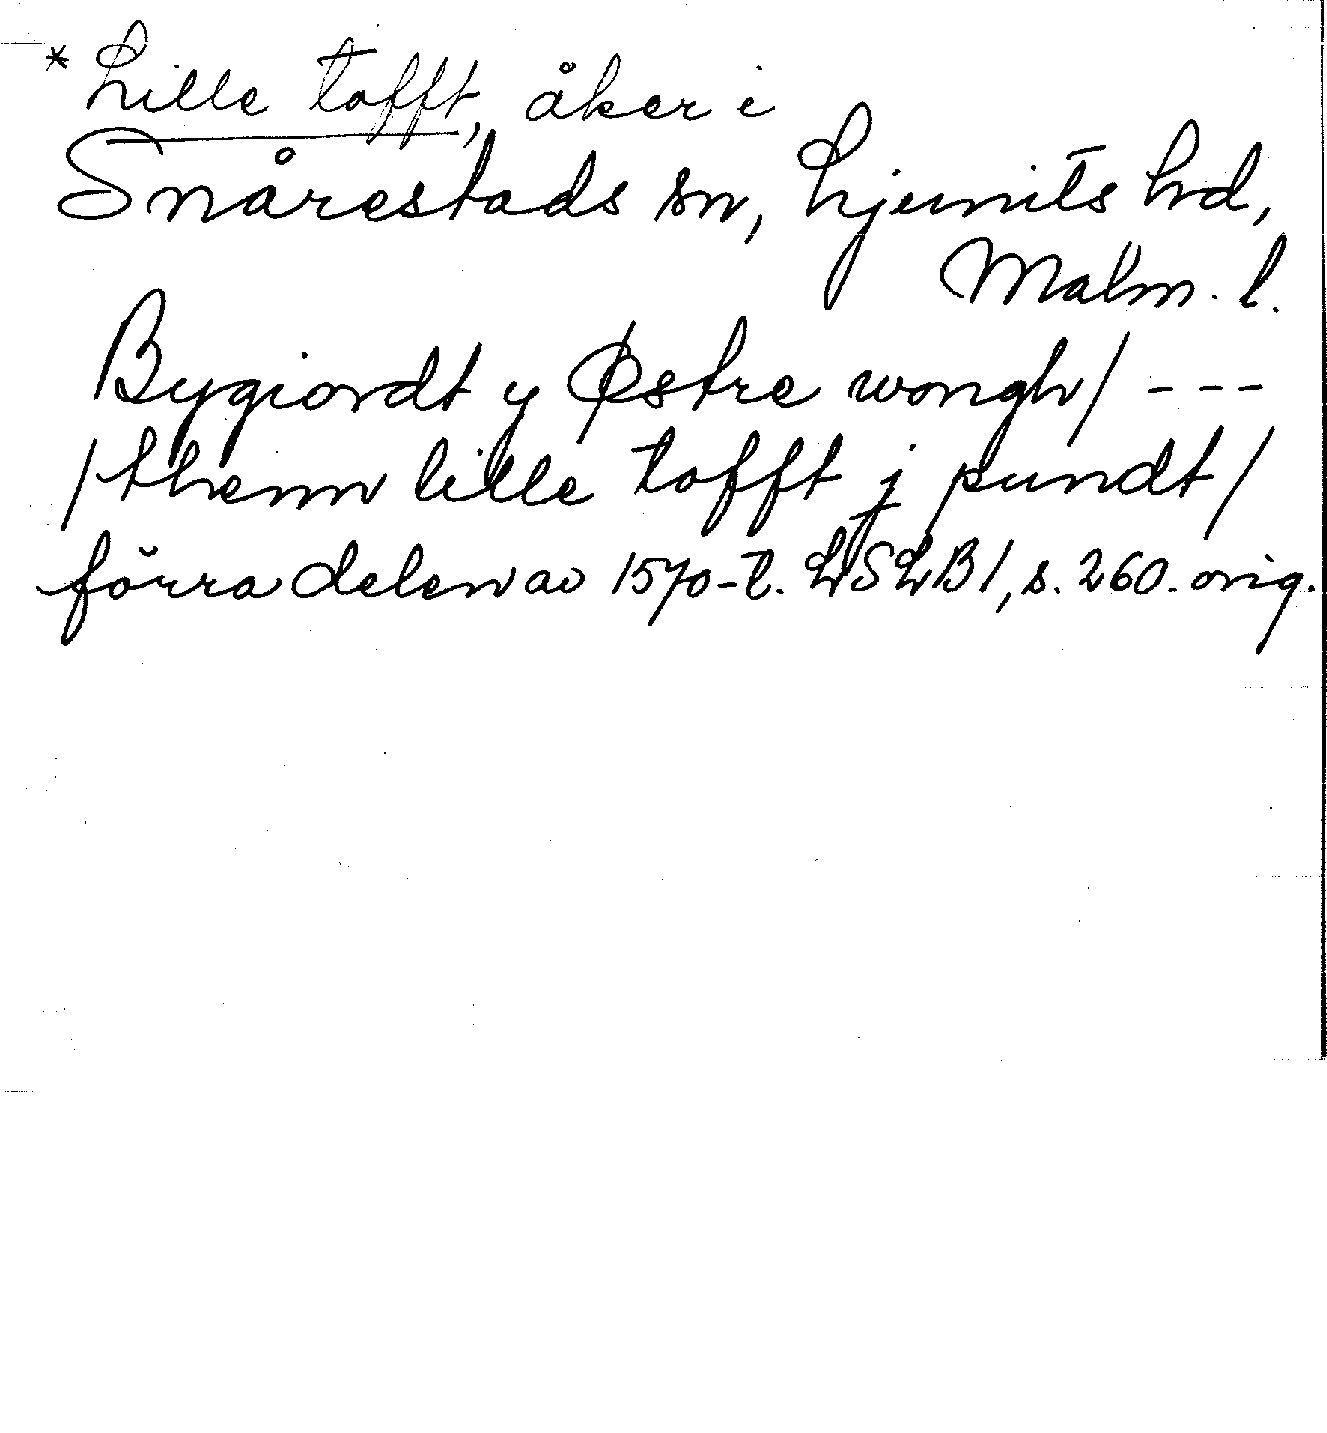 * Lille tofft, åker i
Snårestads sn, Ljunits hd,
Malm. l.
Bygiordt y Østre wongh/ ---
/thenn lille tofft j pundt/
förra delen av 1570-t. LSLB 1, s. 260. orig.